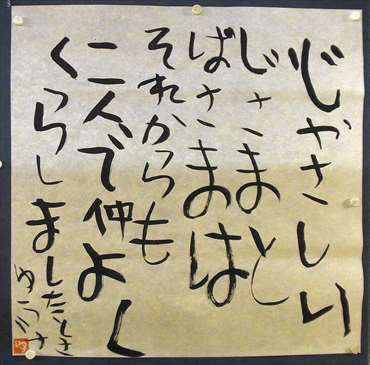 心やさしい
じさまと
ばさまは
それからも
二人で仲よく
くらしましたとさ